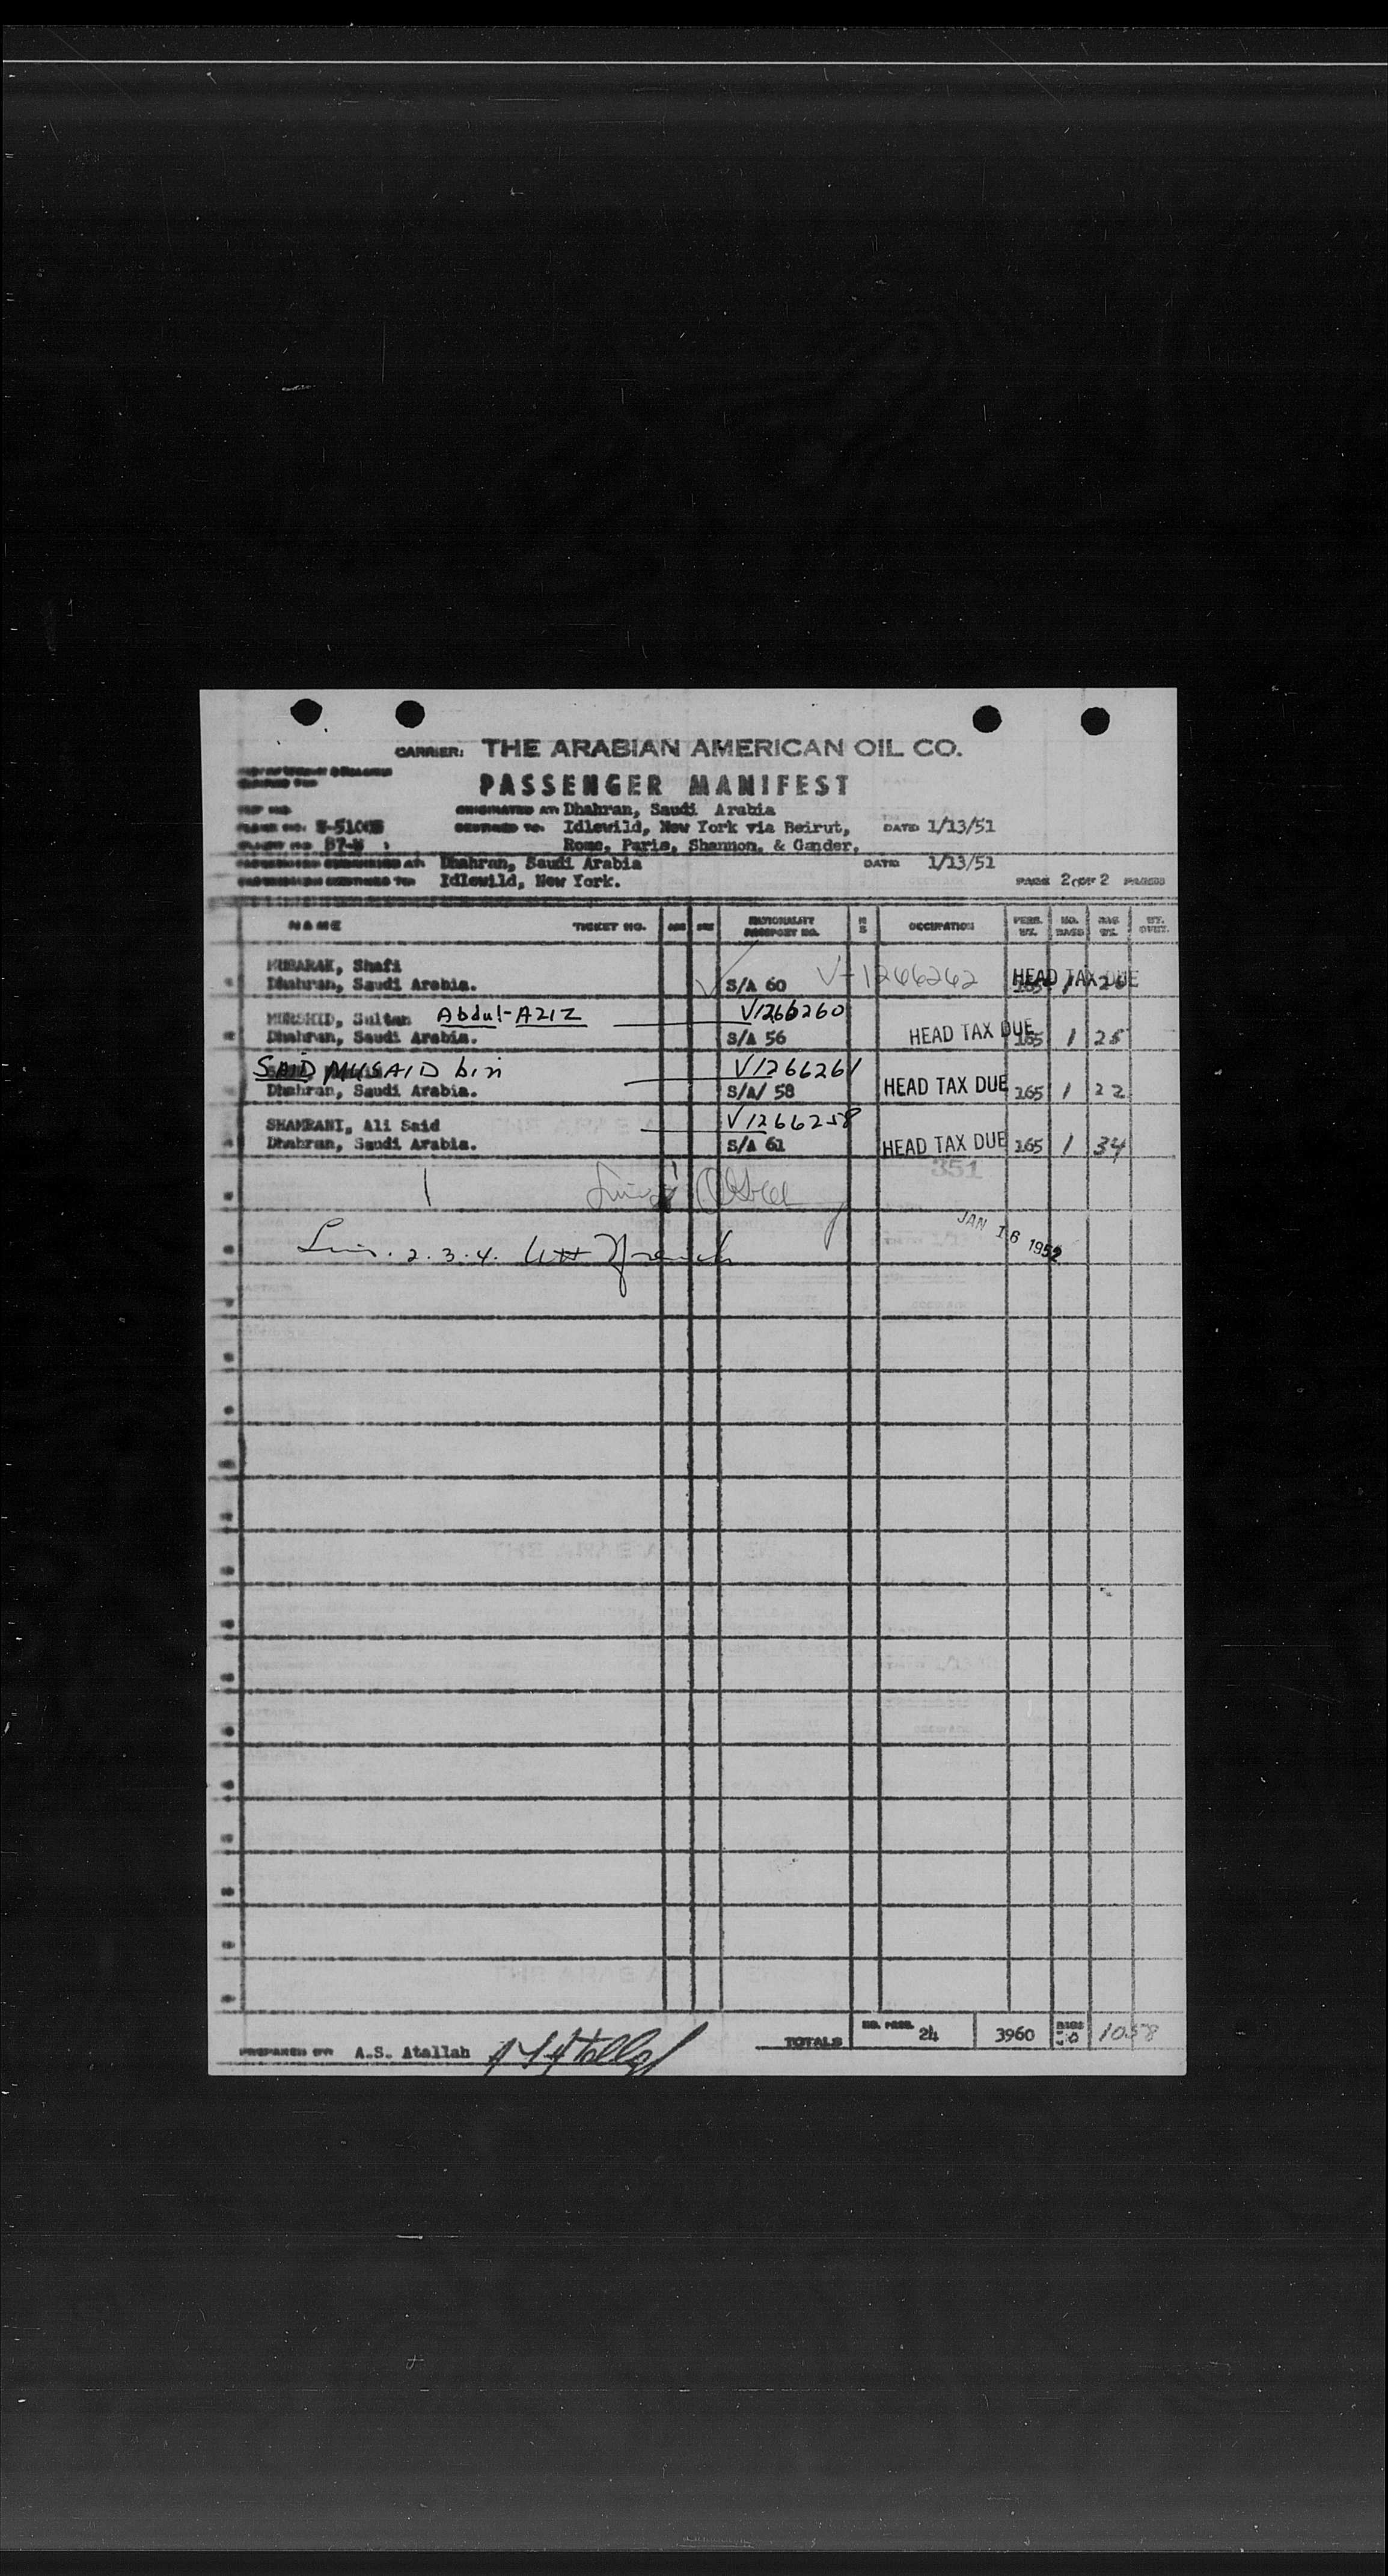 CARRIER: THE ARABIAN AMERICAN OIL CO.
PASSENGER MANIFEST
ORIGINATED AT: Dhahran, Saudi Arabia
DESTINED TO. Idlewild, New York via Beirut, DATE: 1/13/51
Rome, Paris, Shannon, & Gander,
Dhahran, Saudi Arabia DATE: 1/13/51
Idlewild, New York. PAGE 2 OF 2 PAGES
NAME TICKET NO. AGE SEX NATIONALITY PASSPORT NO. OCCUPATION PERS. WT. NO. BAGS BAG WT.
MUBARAK, Shafi V-1266262
Dhahran, Saudi Arabia. S/A 60 HEAD TAX DUE 165 1
MURSHID, Sultan Abdul-AZIZ V1266260
Dhahran, Saudi Arabia. S/A 56 HEAD TAX DUE 165 1 25
SAID MUSAID bin V1266261
Dhahran, Saudi Arabia. S/A/ 58 HEAD TAX DUE 165 1 22
SHAMRANI, Ali Said V1266258
Dhahran, Saudi Arabia. S/A 61 HEAD TAX DUE 165 1 34
351
JAN 16 1952
2.3.4.
PREPARED BY A.S. Atallah TOTALS NO. PASS. 24 3960 BAGS 1058